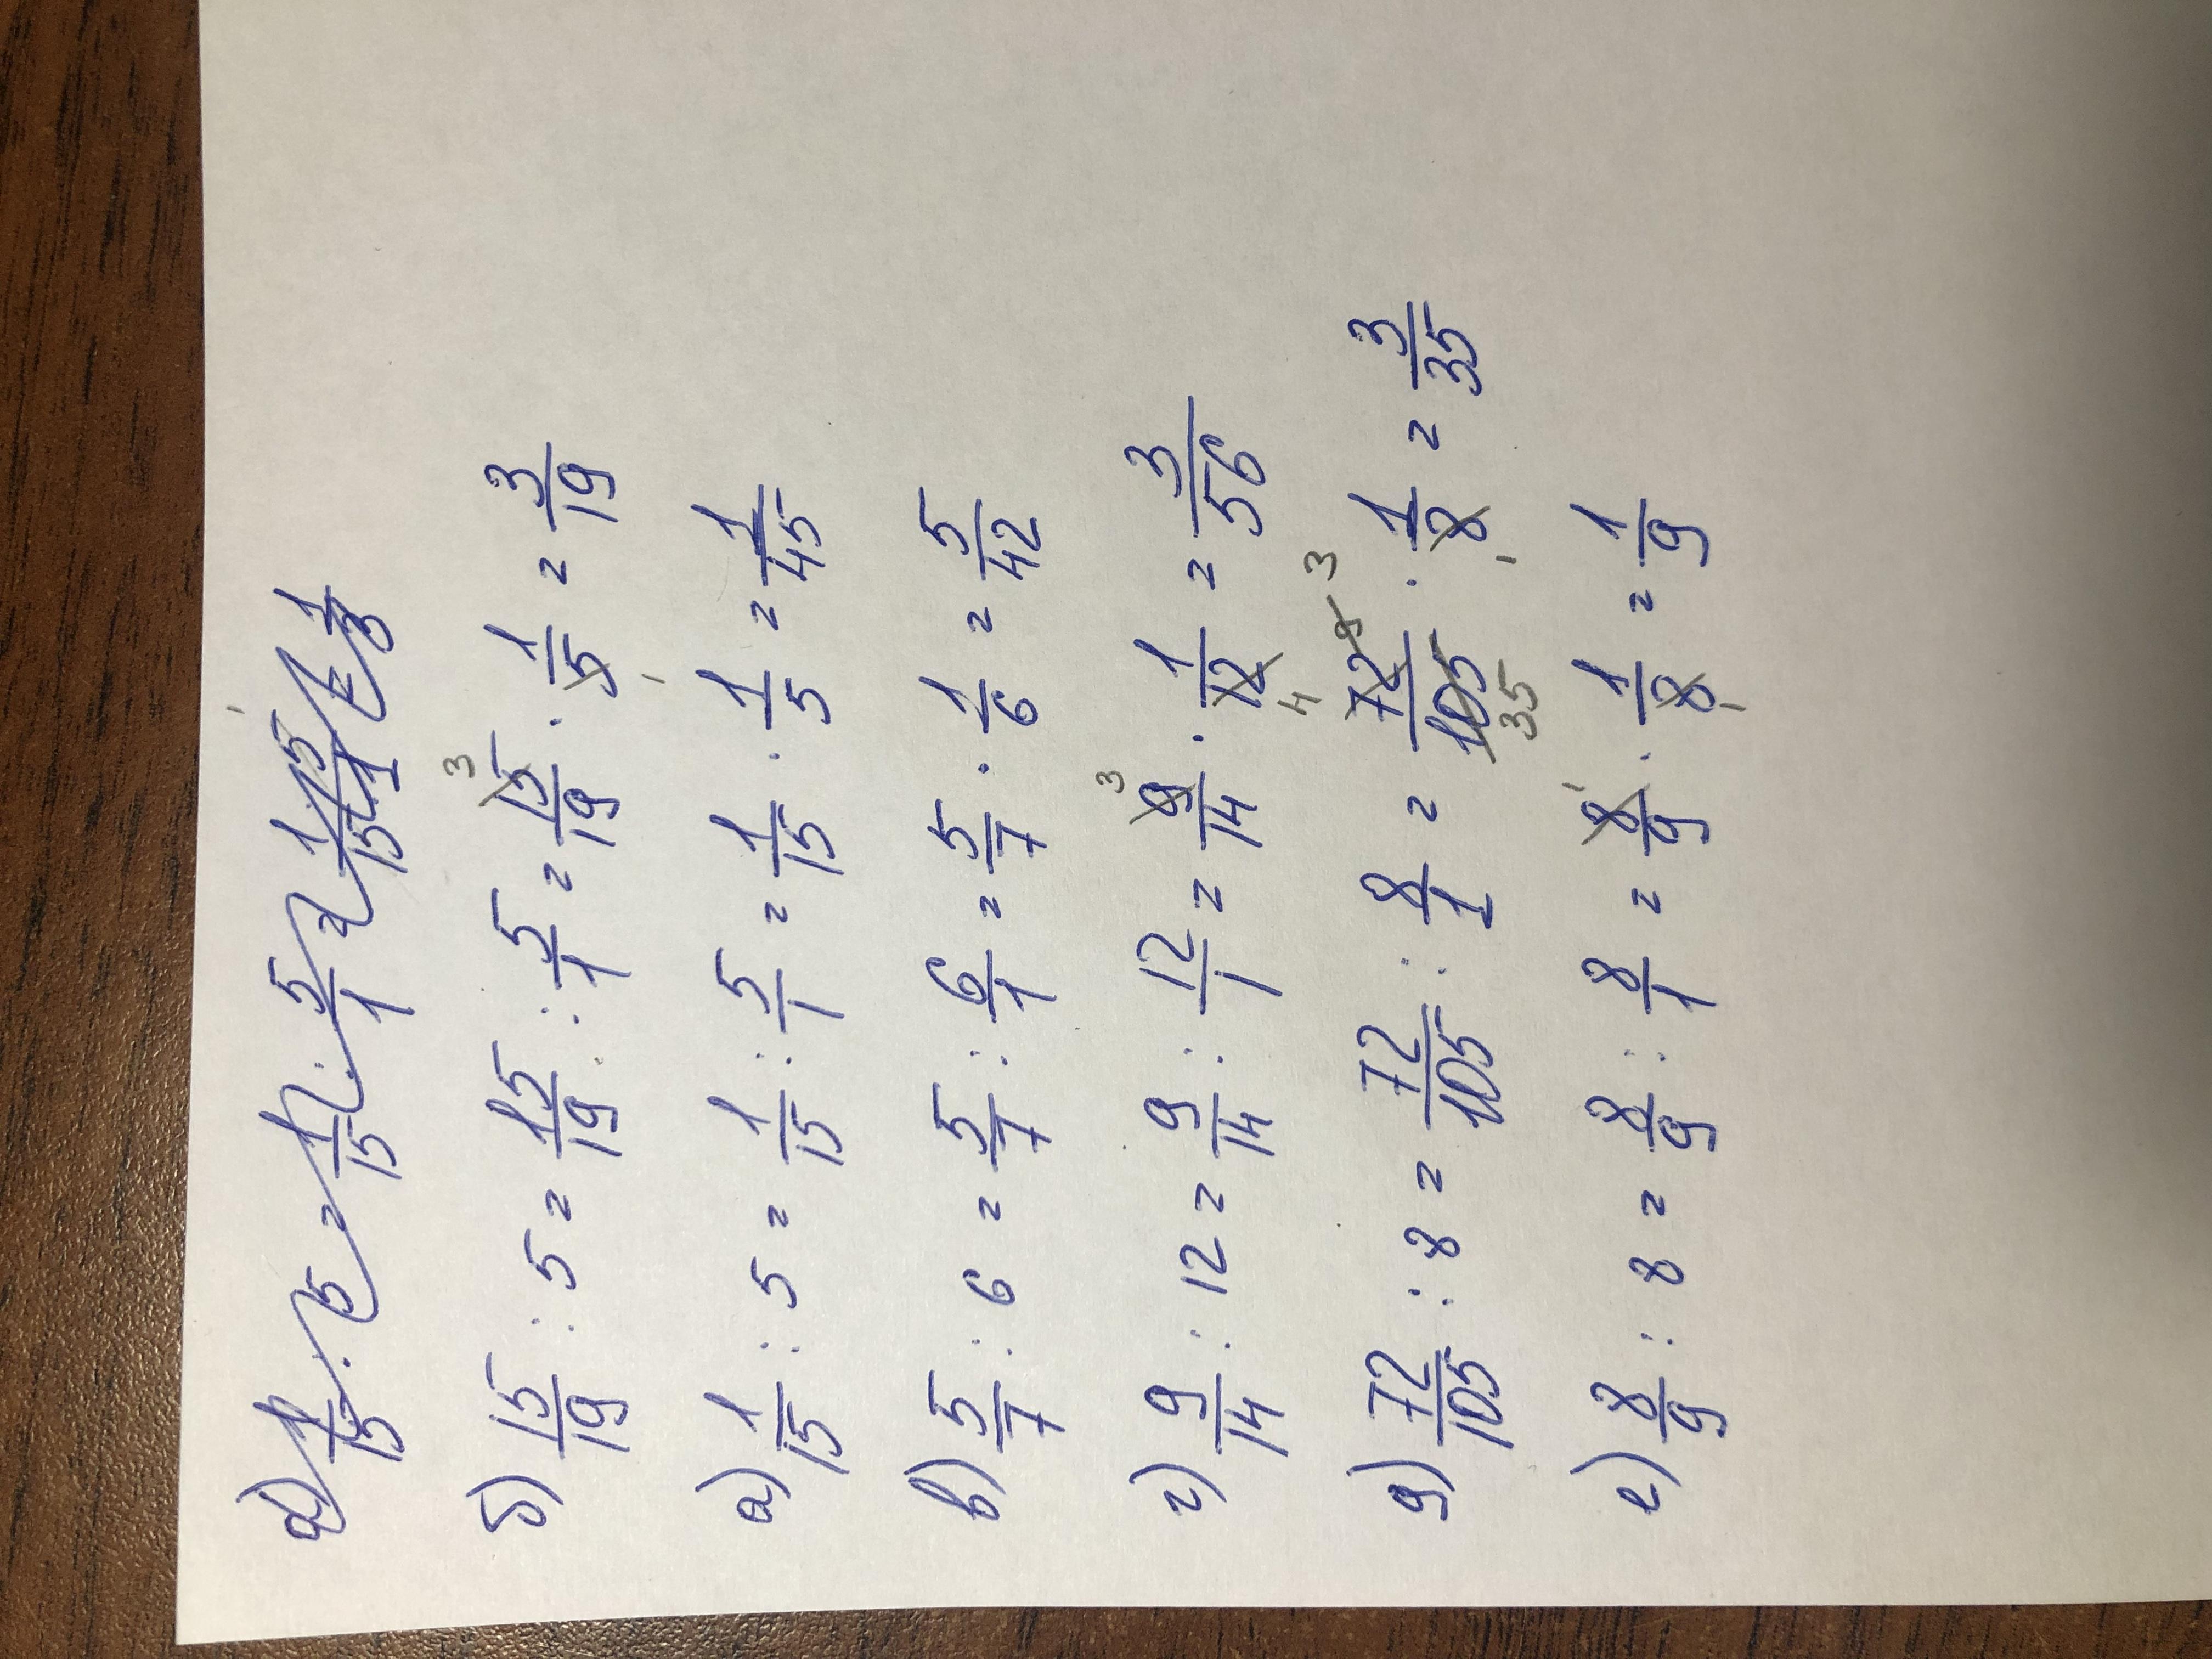 а) 1/15 : 5 = 1/15 : 5/1 = 1/15 · 15/1 = 1/3
б) 15/19 : 5 = 15/19 : 5/1 = 15/19 · 1/5 = 3/19
а) 1/15 : 5 = 1/15 : 5/1 = 1/15 · 1/5 = 1/45
в) 5/7 : 6 = 5/7 : 6/1 = 5/7 · 1/6 = 5/42
г) 9/14 : 12 = 9/14 : 12/1 = 9/14 · 1/12 = 3/56
д) 72/105 : 8 = 72/105 : 8/1 = 72/105 · 1/8 = 3/35
е) 8/9 : 8 = 8/9 : 8/1 = 8/9 · 1/8 = 1/9